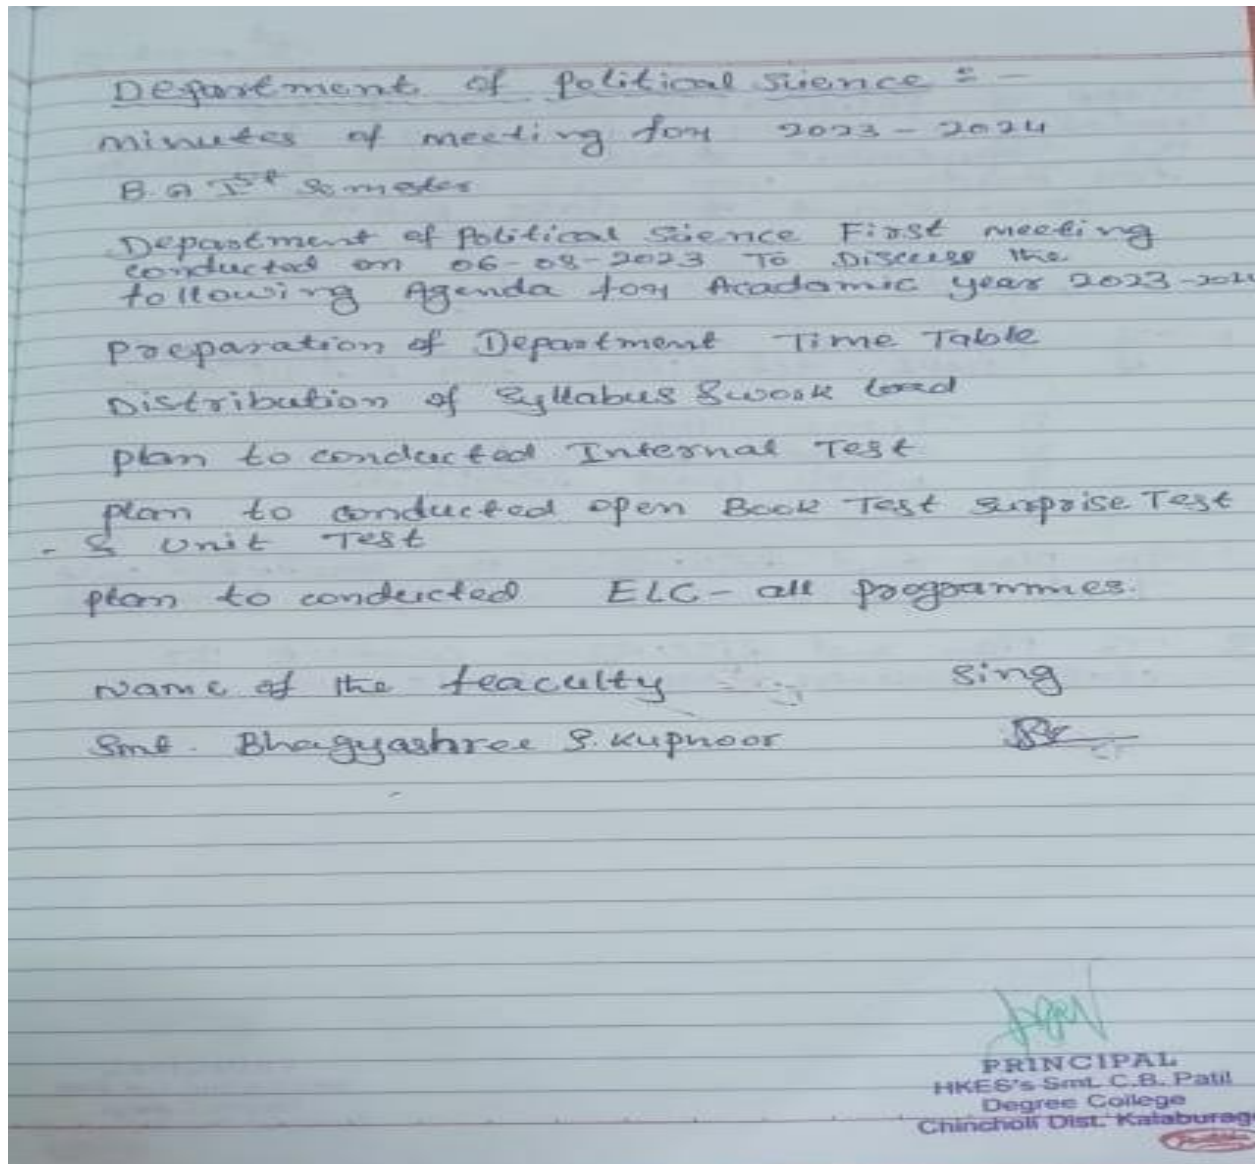 Department of political sience :-
minutes of meeting for 2023-2024
B.A Ist Semester
Department of political sience First meeting
conducted on 06-08-2023 To Discuss the
following Agenda for Acadamic year 2023-2024
Preparation of Department Time Table
Distribution of Syllabus & work load
plan to conducted Internal Test
plan to conducted open Book Test Surprise Test
- & Unit Test
plan to conducted ELC - all programmes.
Name of the feaculty Sing
Smt. Bhagyashree S. Kupnoor
PRINCIPAL
HKES's Smt. C.B. Patil
Degree College
Chincholi Dist. Kalaburag